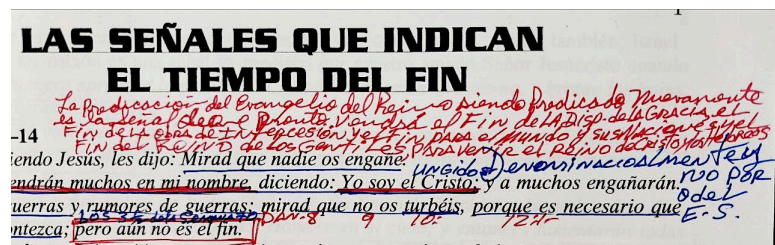 LAS SEÑALES QUE INDICAN
EL TIEMPO DEL FIN
La Predicación del Evangelio del Reino siendo Predicado Nuevamente
es la señal de que Pronto Vendrá el Fin de LA DISP. de la GRACIA, el
Fin de la OBRA DE INTERCESIÓN y el Fin PARA el MUNDO y SUS NACIONES
Fin del REINO DE LOS GENTILES PARA VENIR EL REINO DE CRISTO
–14
iendo Jesús, les dijo: Mirad que nadie os engañe.
UNGIDOS DENOMINACIONALMENTE Y
endrán muchos en mi nombre, diciendo: Yo soy el Cristo; y a muchos engañarán.
NO POR
uerras y rumores de guerras; mirad que no os turbéis, porque es necesario que
E-S.
DAN-8 9 10:- 12:-
ontezca; pero aún no es el fin.